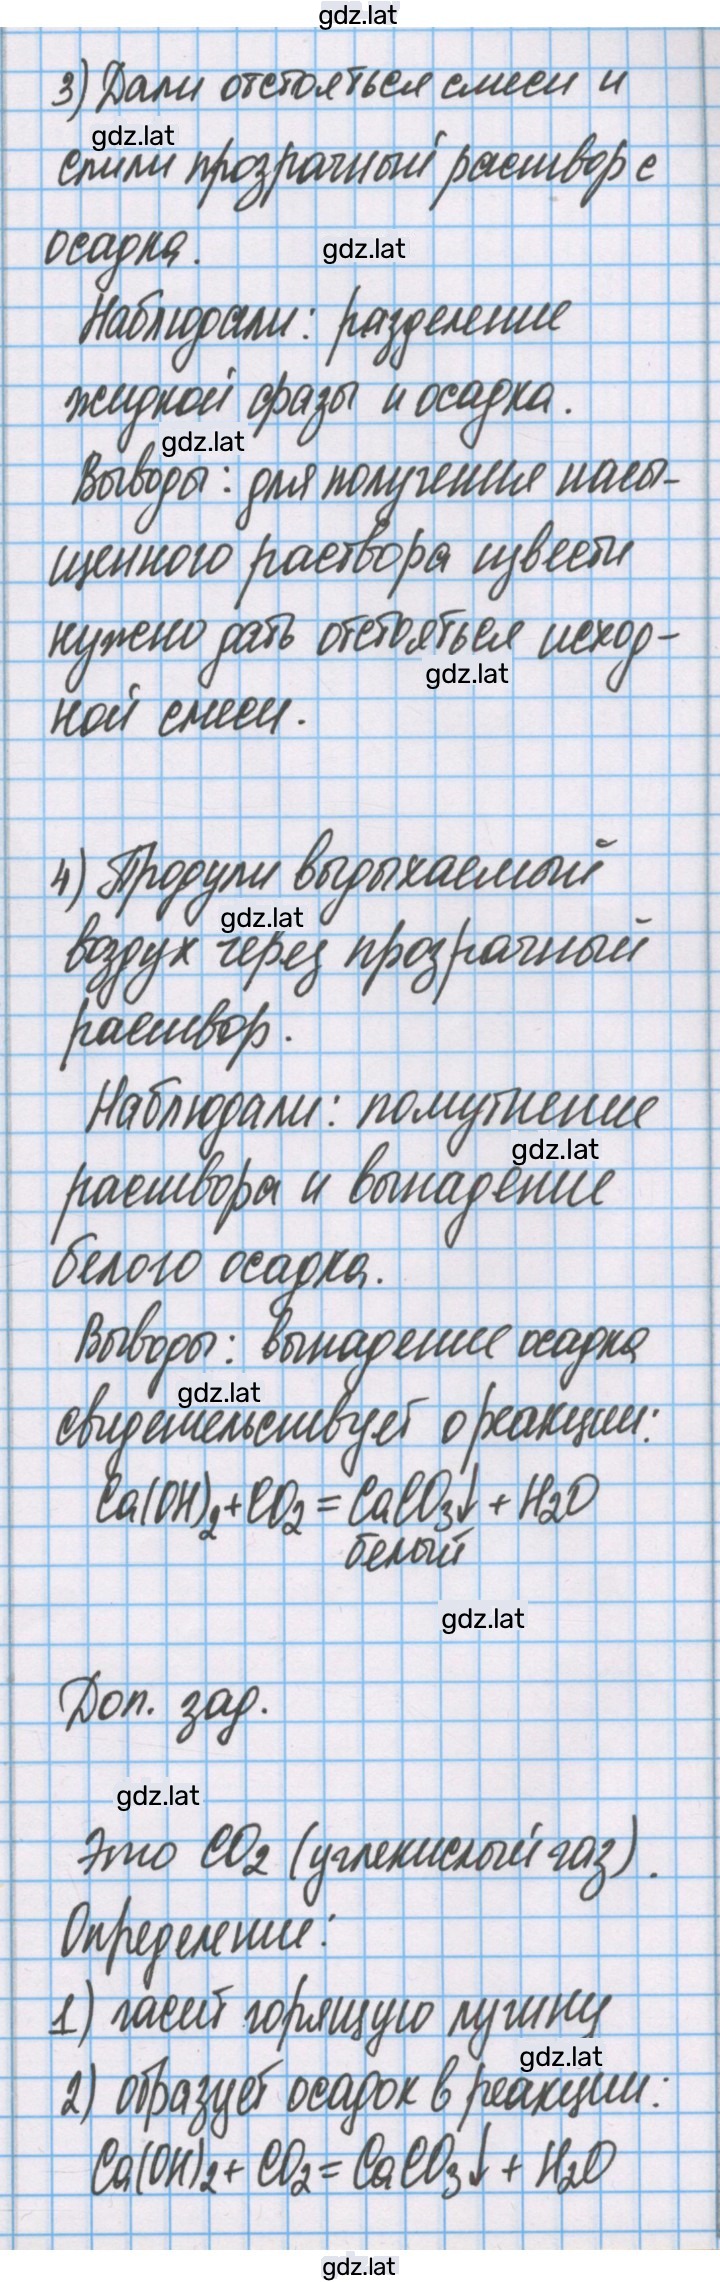 gdz.lat
3) Дали отстояться смеси и
gdz.lat
слили прозрачный раствор с
осадка.
gdz.lat
Наблюдали: разделение
жидкой фразы и осадка.
gdz.lat
Выводы: для получения насы-
щенного раствора извести
нужно дать отстояться исход-
gdz.lat
ной смеси.
4) Продули выдыхаемый
gdz.lat
воздух через прозрачный
раствор.
Наблюдали: помутнение
gdz.lat
раствора и выпадение
белого осадка.
Выводы: выпадение осадка
gdz.lat
свидетельствует о реакции:
Ca(OH)₂+CO₂=CaCO₃↓+H₂O
белый
gdz.lat
Доп. зад.
gdz.lat
Это CO₂ (углекислый газ).
Определение:
1) гасит горящую лучину
gdz.lat
2) образует осадок в реакции:
Ca(OH)₂+CO₂=CaCO₃↓+H₂O
gdz.lat